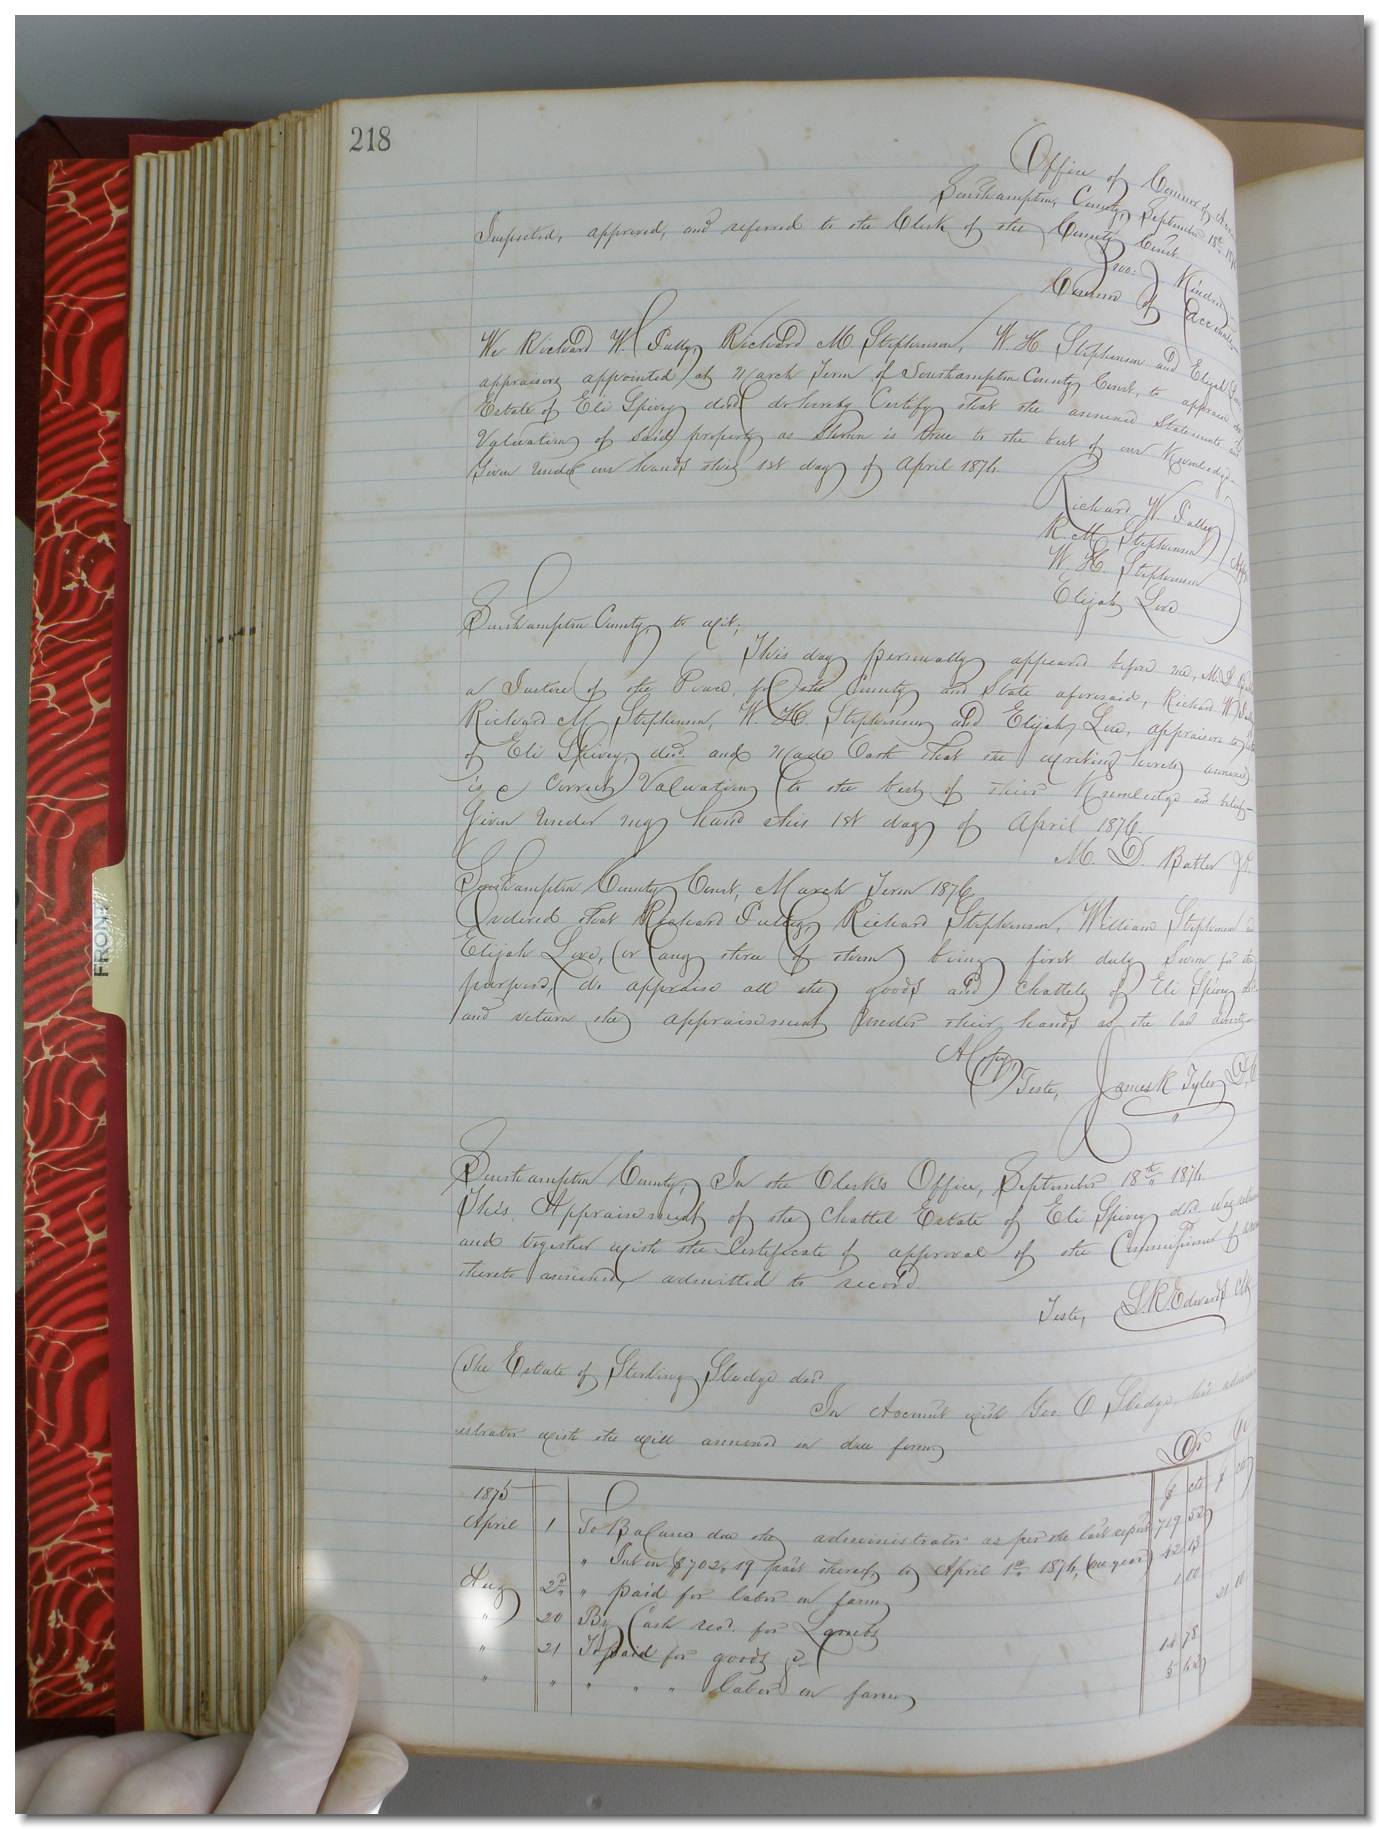 218
Office of Commr of
Southampton County, September 18th 187
Inspected, approved, and referred to the Clerk of the County Court.
Kindred
Commr of Accounts
We Richard W. Pulley, Richard M Stephenson, W H Stephenson and Elijah
appraisers appointed at March Term of Southampton County Court, to appraise the
Estate of Eli Spivey decd do hereby Certify that the annexed Statements and
Valuation of said property as shown is true to the best of our Knowledge
Given under our hands this 1st day of April 1876.
Richard W. Pulley
R. M. Stephenson
W. H. Stephenson
Elijah Love
Southampton County, to wit;
This day personally appeared before me, M. D.
a Justice of the Peace, for the County and State aforesaid, Richard W
Richard M Stephenson, W. H. Stephenson and Elijah Love, appraisers
of Eli Spivey, decd. and Made Oath that the writing hereto annexed
is a Correct Valuation to the best of their Knowledge and belief
Given under my hand this 1st day of April 1876.
M. D. Butler
Southampton County Court, March Term 1876
Ordered that Richard Pulley, Richard Stephenson, William Stephenson and
Elijah Love, (or any three of them) being first duly Sworn for the
purpose, do appraise all the goods and Chattels of Eli Spivey decd
and return the appraisement under their hands as the law directs
A Copy
Teste, James R Tyler D.C.
Southampton County, In the Clerk's Office, September 18th 1876
This Appraisement of the Chattel Estate of Eli Spivey decd. was
and together with the Certificate of approval of the Commissioner of
thereto annexed, admitted to record.
Teste, L. R. Edwards Clk
The Estate of Sterling Sledge decd
In Account with Geo. O. Sledge, his admin
istrator with the will annexed in due form
Dr
1875 $ cts $ cts
April 1 To Balance due the administrator as per the last report 719 52
" Int on $702.19 part thereof, to April 1st 1876, (one year) 42 13
Aug 2d " paid for labor on farm 1 00
" 20 By Cash recd. for Lambs 21 00
" 21 To paid for goods 14 78
" " " " " labor on farm 5 62
FRONT